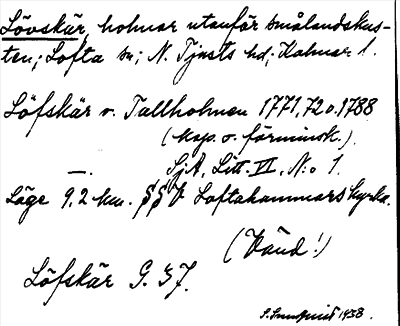 Lövskär, holmar utanför Smålandskus-
ten; Lofta sn; N. Tjusts hd; Kalmar l.
Löfskär v. Tallholmen 1771,72 o. 1788
(Map. o. förminsk.).
—. SjA, Litt. VI, N:o 1.
Läge 9,2 km. SSV Loftahammars kyrka.
(Vänd!)
Löfskär G. 37.
1938.